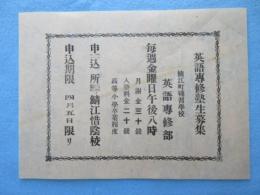 英語專修塾生募集
鯖江町補習學校
英語專修部
毎週金曜日午後八時
月謝金三十錢
入塾料金二十錢
高等小學卒業程度
申込所 鯖江惜陰校
申込期限 四月五日限リ